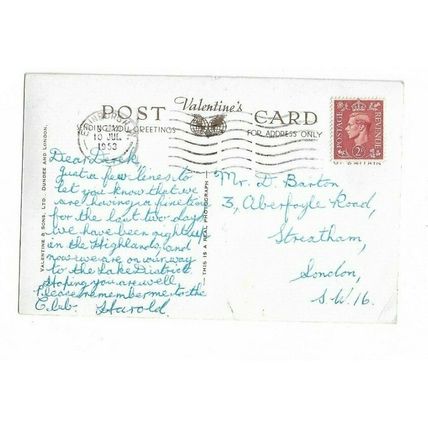 POST Valentine's CARD
SENDING YOU GREETINGS FOR ADDRESS ONLY
EDINBURGH
10 JUL
1953
POSTAGE REVENUE
2D
Dear Derek
Just a few lines to
let you know that we
are having a fine time
for the last two days
we have been right up
in the Highlands, and
now we are on our way
to the Lake District
Hoping you are well,
Please remember me to the
Club. Harold
Mr. D. Barton
3, Aberfoyle Road,
Streatham,
London,
S.W.16.
VALENTINE & SONS, LTD., DUNDEE AND LONDON.
THIS IS A REAL PHOTOGRAPH